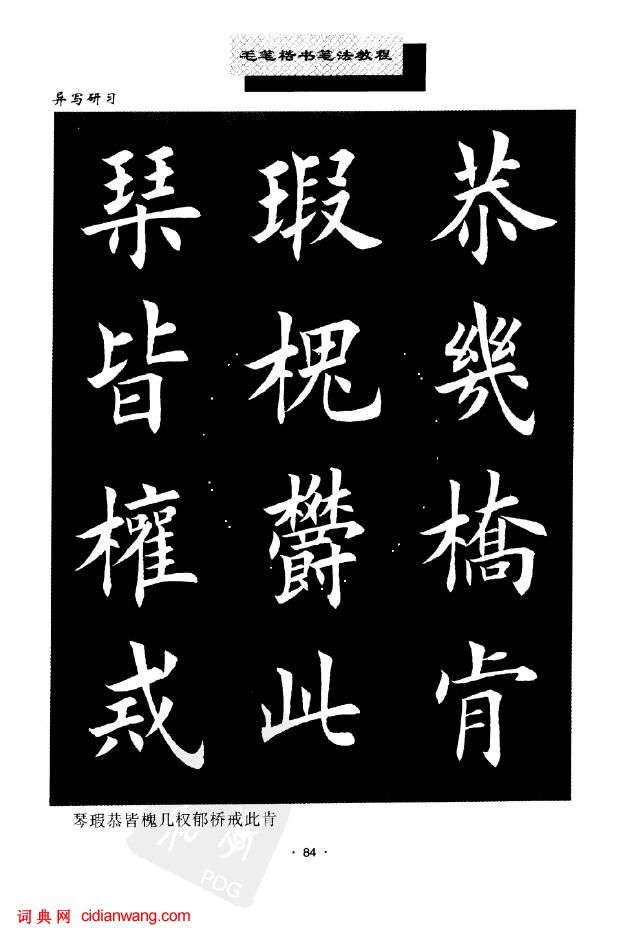 毛笔楷书笔法教程
异写研习
琹瑕恭
皆槐幾
權鬱橋
戒此肯
琴瑕恭皆槐几权郁桥戒此肯
· 84 ·
PDG
词典网 cidianwang.com